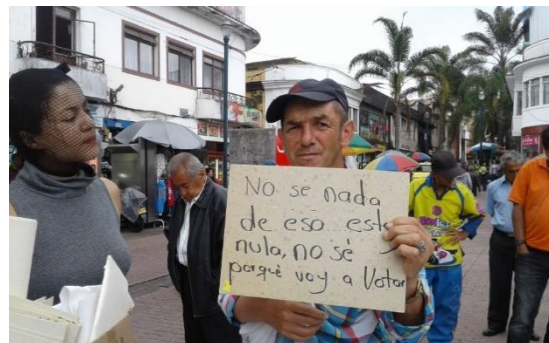 No se nada
de eso esty
nula, no sé
porqué voy a Votar